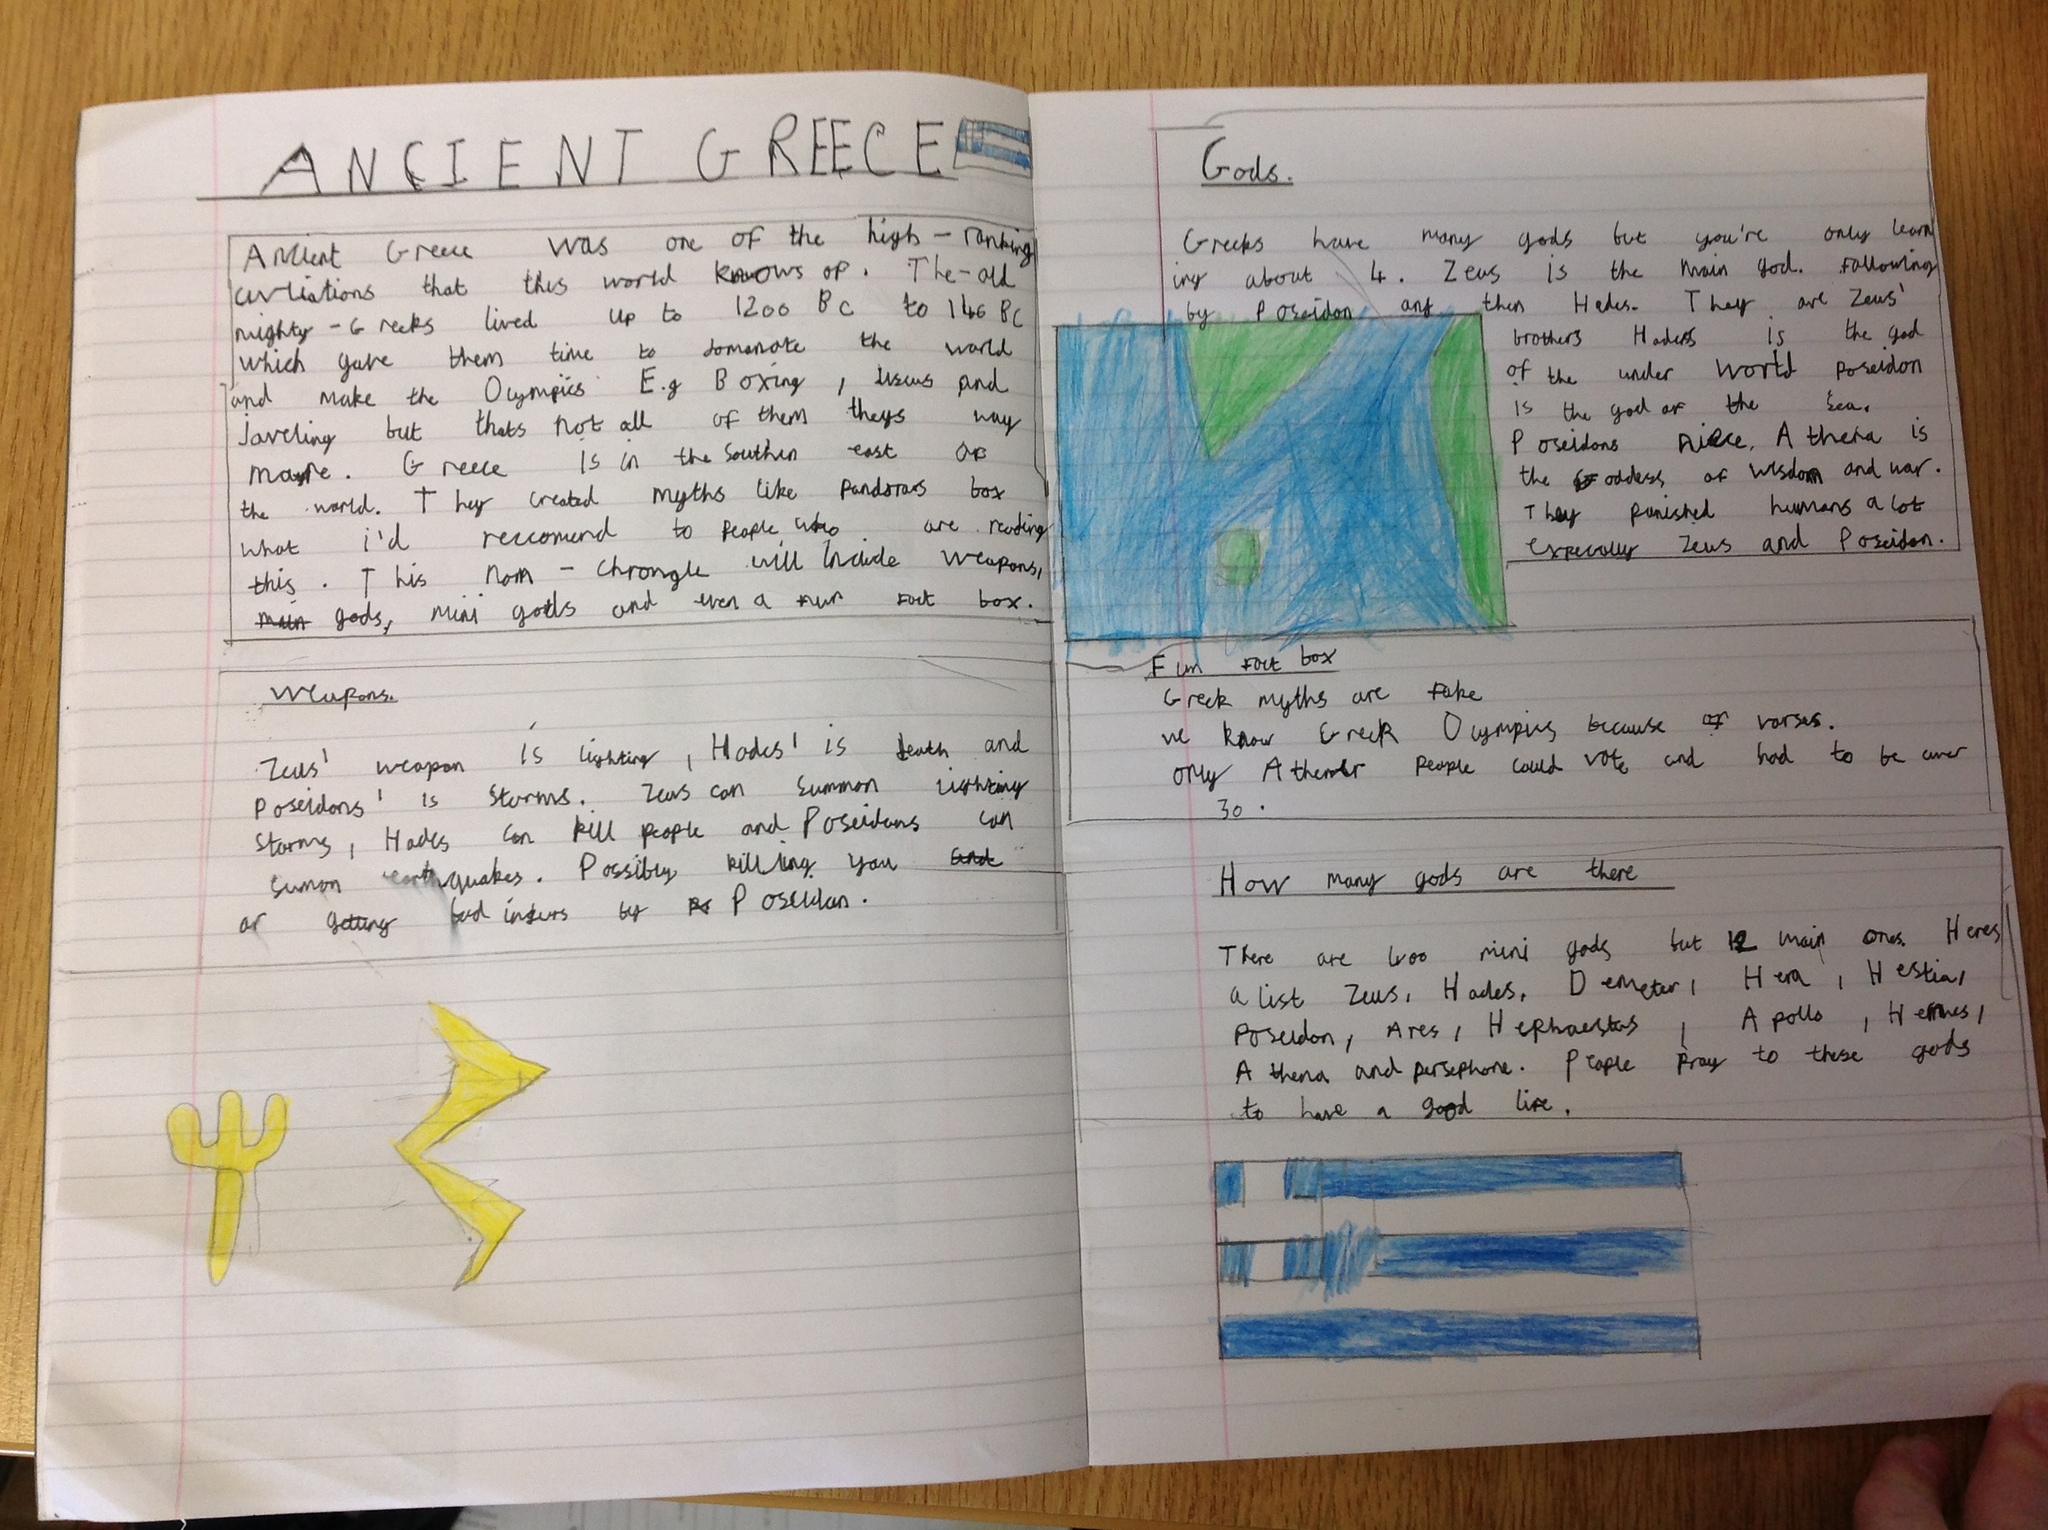 ANCIENT GREECE
Ancient Greece was one of the high-ranking
civiliations that this world knows of. The-old
mighty-Greeks lived up to 1200 BC to 146 BC
which gave them time to domanate the world
and make the Olympics E.g Boxing, discus and
javeling but thats not all of them theys way
more. Greece is in the Southen east of
the world. They created myths like pandoras box
what i'd reccomend to people who are reading
this. This non-chrongle will include weapons,
main gods, mini gods and even a fun fact box.
Weapons.
Zeus' weapon is lighting, Hades' is death and
Poseidons' is storms. Zeus can summon lighting
storms, Hades can kill people and Poseidons can
sumon earthquakes. Possibly killing you and
or getting bad injurs by Poseidon.
Gods.
Greeks have many gods but you're only learn
ing about 4. Zeus is the main god. Following
by Poseidon and then Hades. They are Zeus'
brothers Haders is the god
of the under world poseidon
is the god of the sea.
Poseidons niece, Athena is
the Goddess of wisdom and war.
They punished humans a lot
expecully Zeus and Poseidon.
Fun fact box
Greek myths are fake
we know Greek Olympics because of varses.
only Athener people could vote and had to be over
30.
How many gods are there
There are 400 mini gods but 12 main ones. Heres
a list Zeus, Hades, Demeter, Hera, Hestia,
Poseidon, Ares, Hephaestas, Apollo, Hermes,
Athena and persephone. People pray to these gods
to have a good life.